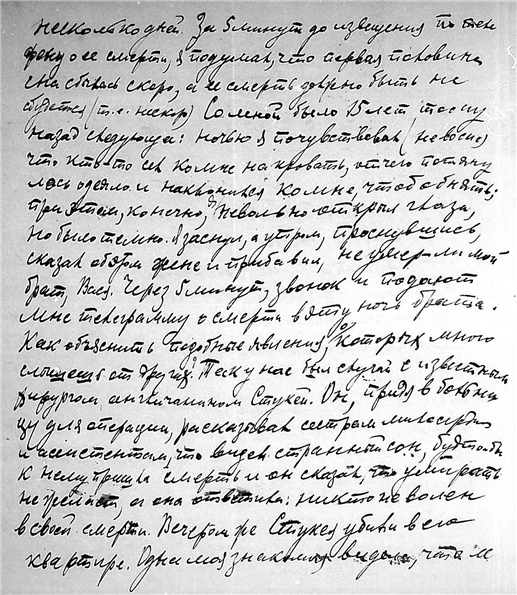 несколько дней. За 5 минут до извещения по теле
фону о ее смерти, я подумал, что первая половина
сна сбылась скоро, а ее смерть должно быть не
сбудется (т.е. не скор) Со мной было 15 лет тому
назад следующее: ночью я почувствовал (не во сне)
что кто-то сел ко мне на кровать, отчего потяну
лось одеяло и наклонился ко мне, чтоб обнять;
при этом, конечно, я невольно открыл глаза,
но было темно. Я заснул, а утром, проснувшись,
сказал об этом жене и прибавил, не умер-ли мой
брат, Вася. Через 5 минут, звонок и подают
мне телеграмму о смерти в эту ночь брата.
Как объяснить подобные явления, о которых много
слышишь от других? Так у нас был случай с известным
хирургом, англичанином Стуккей. Он, придя в больни
цу для операции, рассказывал сестрам милосердия
и ассистентам, что видел странный сон, будто-бы
к нему пришла смерть и он сказал, что умирать
не желает, а она ответила: никто не волен
в своей смерти. Вечером же Стуккея убили в его
квартире. Одна моя знакомая видела, что м